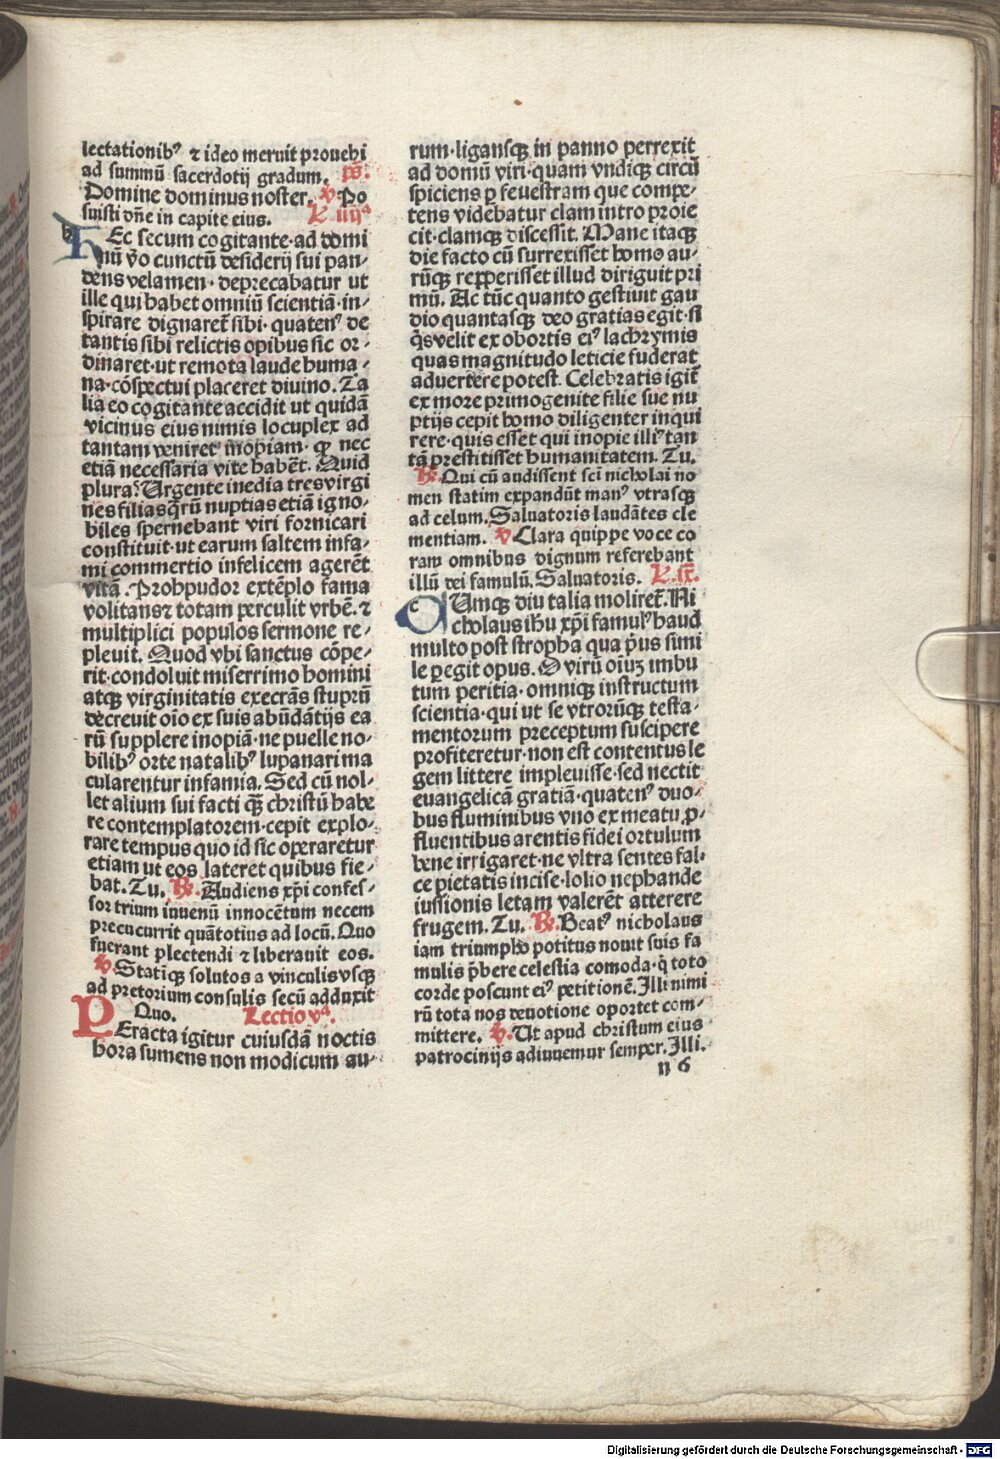 lectationibꝰ ⁊ ideo meruit prouehi
ad summū sacerdotij gradum. ps̄.
Domine dominus noster. ℣ Po
suisti dn̄e in capite eius. L. iiijᵃ
HEc secum cogitante·ad domi
nū v̄o cunctū desiderij sui pan⸗
dens velamen·deprecabatur ut
ille qui habet omniū scientiā·in⸗
spirare dignaret̄ sibi·quatenꝰ de
tantis sibi relictis opibus sic or⸗
dinaret·ut remota laude huma⸗
na·cōspectui placeret diuino. Ta
lia eo cogitante accidit ut quidā
vicinus eius nimis locuplex ad
tantam veniret inopiam· ꝙ nec
etiā necessaria vite habēt. Quid
plura? Urgente inedia tres virgi
nes filias q̄rū nuptias etiā igno⸗
biles spernebant viri fornicari
constituit·ut earum saltem infa⸗
mi commertio infelicem agerēt
vitā. Prohpudor extēplo fama
volitans ⁊ totam perculit vrbē. ⁊
multiplici populos sermone re⸗
pleuit. Quod vbi sanctus cōpe⸗
rit·condoluit miserrimo homini
atqꝫ virginitatis execrās stuprū
decreuit oīo ex suis abūdātijs ea
rū supplere inopiā·ne puelle no⸗
bilibꝰ orte natalibꝰ lupanari ma
cularentur infamia. Sed cū nol⸗
let alium sui facti qꝫ̄ christū habe
re contemplatorem·cepit explo⸗
rare tempus quo id sic operaretur
etiam ut eos lateret quibus fie⸗
bat. Tu. ℟. Audiens xp̄i confes⸗
sor trium iuuenū innocētum necem
precucurrit quātotius ad locū. Quo
fuerant plectendi ⁊ liberauit eos.
℣. Statiqꝫ solutos a vinculis vsqꝫ
ad pretorium consulis secū adduxit
Quo. Lectio vᵃ.
PEracta igitur cuiusdā noctis
hora sumens non modicum au⸗
rum·ligansqꝫ in panno perrexit
ad domū viri·quam vndiqꝫ circū
spiciens ꝑ feuestram que compe⸗
tens videbatur clam intro proie
cit·clamqꝫ discessit. Mane itaqꝫ
die facto cū surrexisset homo au⸗
rūqꝫ repꝑerisset illud diriguit pri
mū. Ac tūc quanto gestiuit gau
dio quantasqꝫ deo gratias egit·si
q̄s velit ex obortis eiꝰ lachrymis
quas magnitudo leticie fuderat
aduertere potest. Celebratis igit̄
ex more primogenite filie sue nu
ptijs cepit homo diligenter inqui
rere·quis esset qui inopie illiꝰ tan
tā prestitisset humanitatem. Tu.
℟. Qui cū audissent sc̄i nicholai no
men statim expandūt manꝰ vtrasqꝫ
ad celum. Saluatoris laudātes cle
mentiam. ℣ Clara quippe voce co
ram omnibus dignum referebant
illū dei famulū. Saluatoris. L. sx̄.
CUmqꝫ diu talia moliret̄. Ni
cholaus ihu xp̄i famulꝰ haud
multo post stropha qua pꝰus simi
le ꝑegit opus. O virū oīuꝫ imbu
tum peritia·omniqꝫ instructum
scientia·qui ut se vtrorūqꝫ testa⸗
mentorum preceptum suscipere
profiteretur·non est contentus le
gem littere impleuisse·sed nectit
euangelicā gratiā·quatenꝰ duo⸗
bus fluminibus vno ex meatu ꝓ⸗
fluentibus arentis fidei ortulum
bene irrigaret·ne vltra sentes fal⸗
ce pietatis incise·lolio nephande
iussionis letam valerēt atterere
frugem. Tu. ℟. Beatꝰ nicholaus
iam triumpho potitus nouit suis fa
mulis p̄bere celestia comoda·q̄ toto
corde poscunt eiꝰ petitionē. Illi nimi
rū tota nos deuotione oportet com⸗
mittere. ℣. Ut apud christum eius
patrocinijs adiuuemur semper. Illi.
n 6
Digitalisierung gefördert durch die Deutsche Forschungsgemeinschaft - DFG